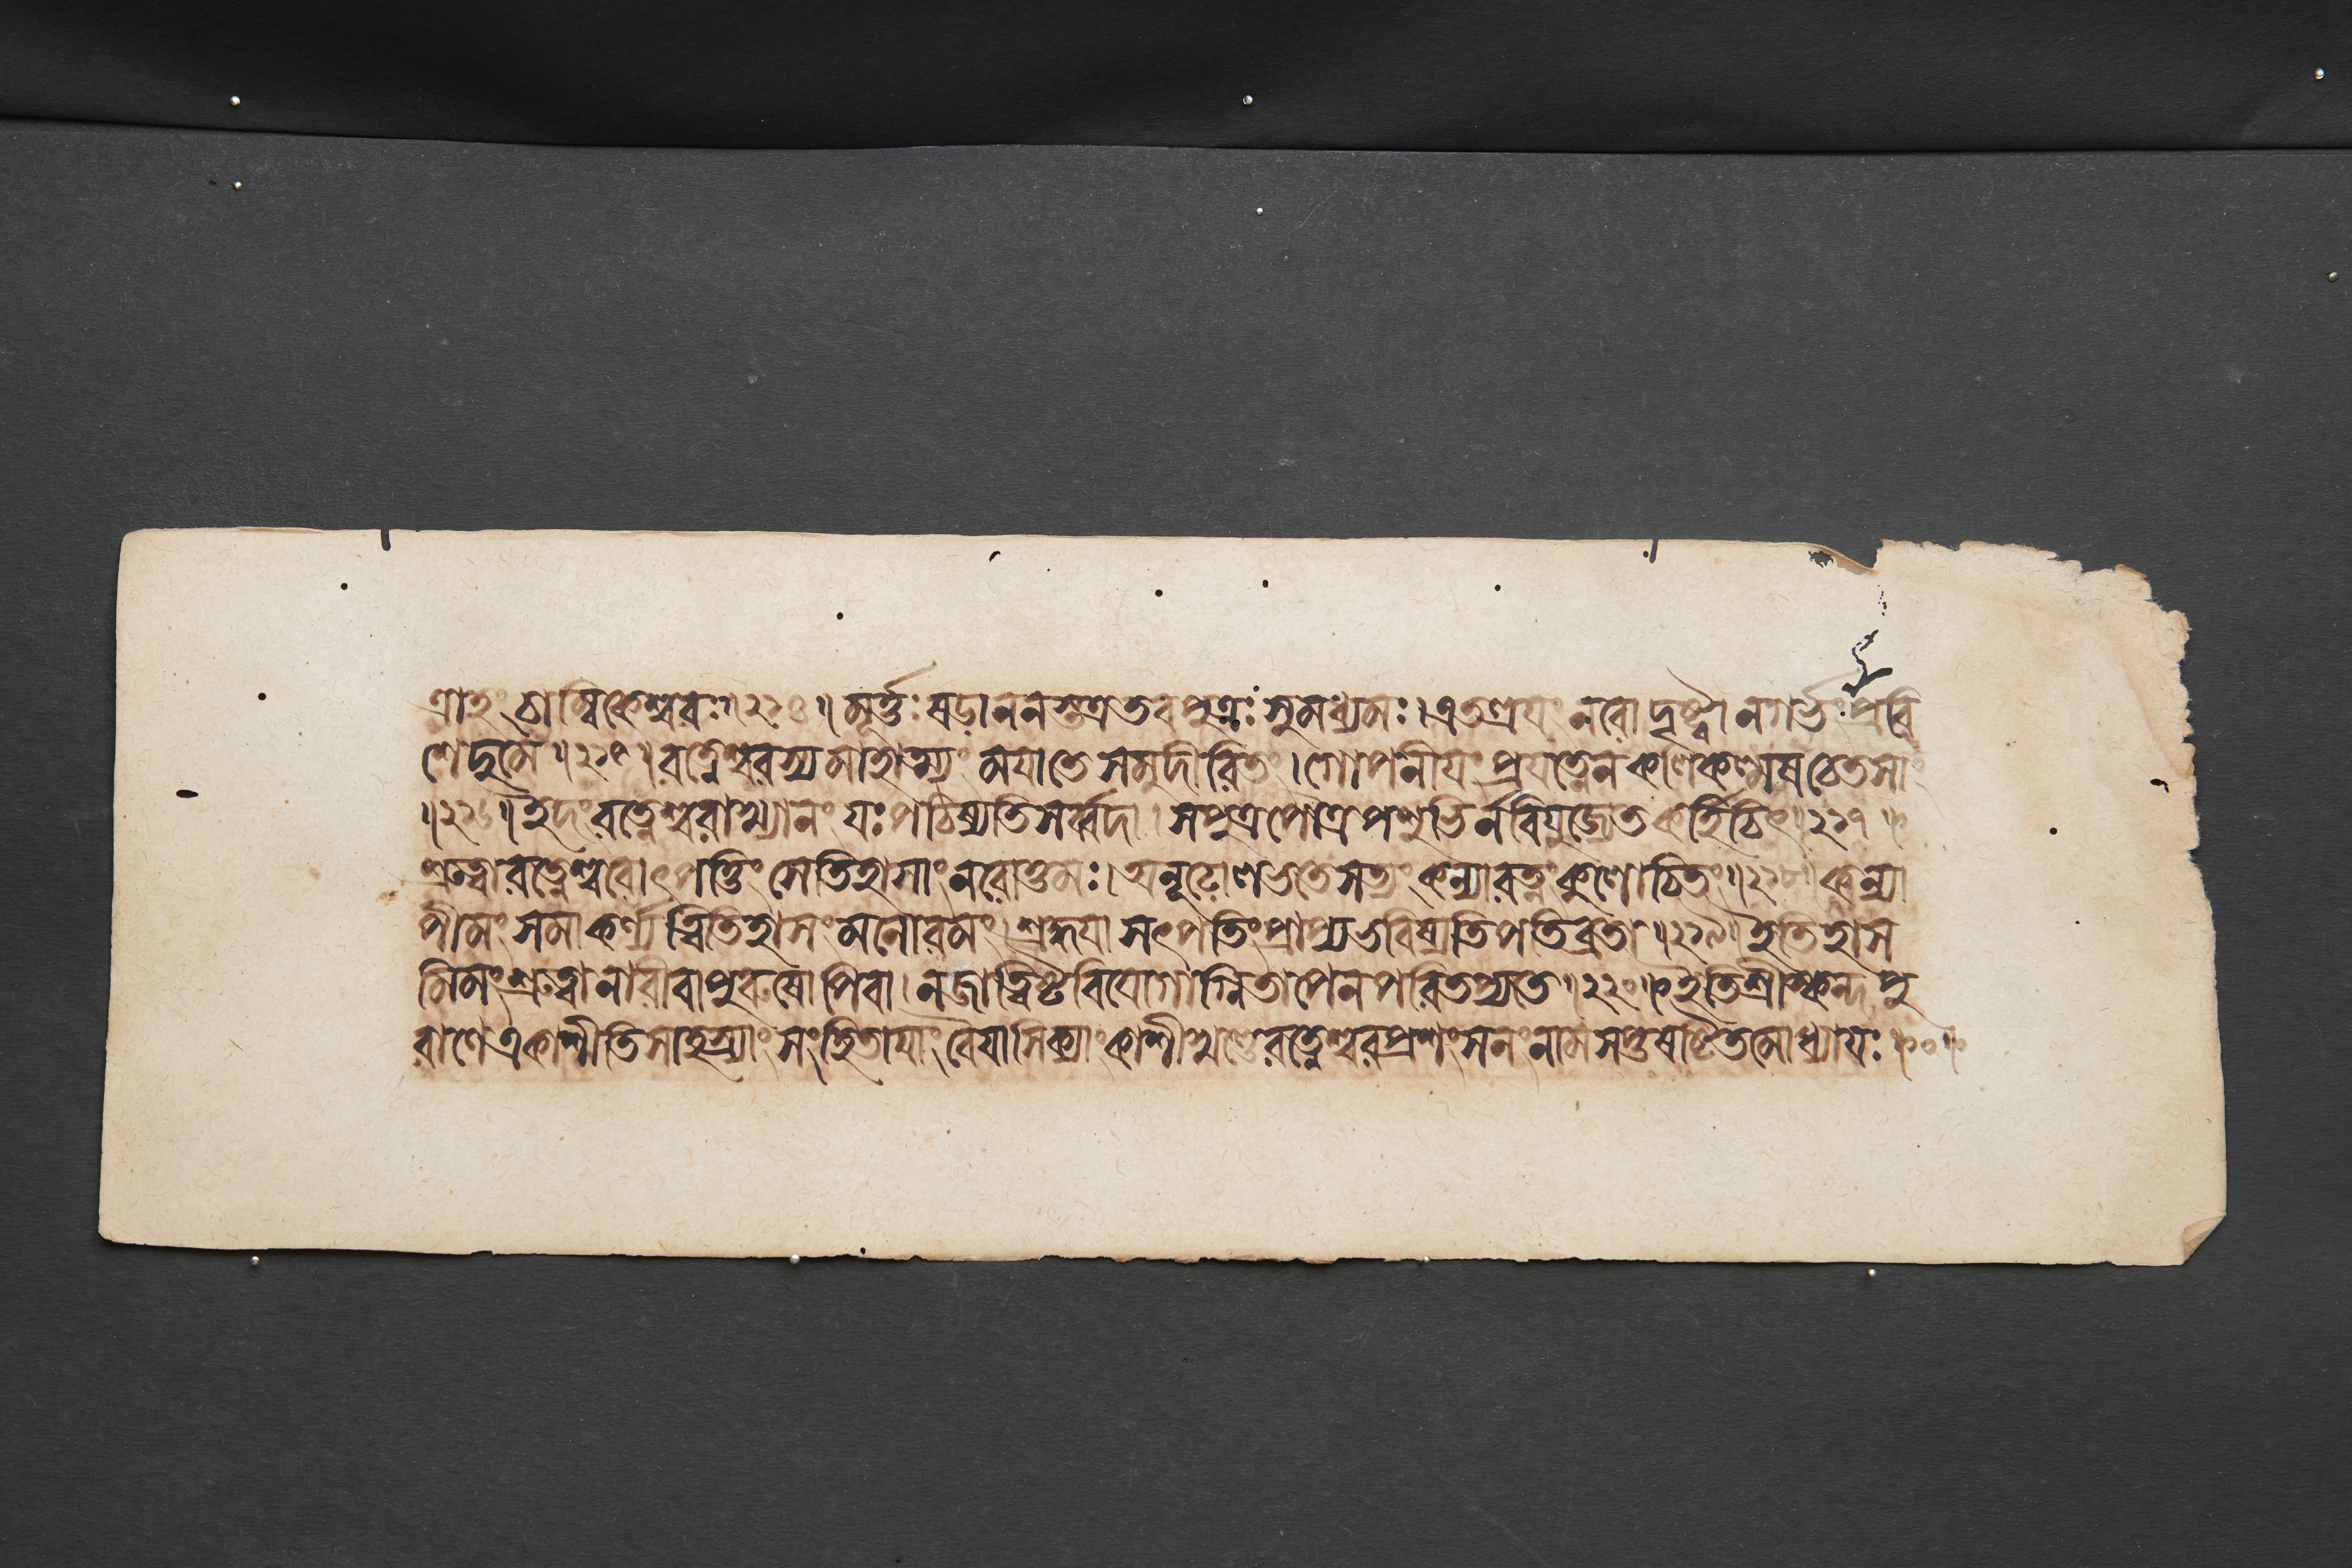 ত্রাহং চাম্বিকেশ্বরঃ॥২১৪॥ মূর্ত্তঃ ষড়াননস্তত্র তব পুত্রঃ সুমধ্যমঃ। এতত্ত্রযং নরো দৃষ্ট্বা ন গর্ভং প্রবি
শেদুমে॥২১৫॥ রত্নেশ্বরস্য মাহাত্ম্যং মযা তে সমুদীরিতং। গোপনীযং প্রযত্নেন কলিকল্মষচেতসাং
॥২১৬॥ ইদং রত্নেশ্বরাখ্যানং যঃ পঠিষ্যতি সর্ব্বদা। সপুত্রপৌত্রপশুভির্ন বিযুজ্যেত কর্হিচিৎ॥২১৭॥
শ্রুত্বা রত্নেশ্বরোৎপত্তিং সেতিহাসাং নরোত্তমঃ। অনূঢো লভতে সত্যং কন্যারত্নং কুলোচিতং॥২১৮॥ কন্যা
পীমং সমাকর্ণ্য ত্বিতিহাসং মনোরমং। শ্রদ্ধযা সৎপতিং প্রাপ্য ভবিষ্যতি পতিব্রতা॥২১৯॥ ইতিহাস
মিমং শ্রুত্বা নারী বা পুরুষোপি বা। ন জাত্বিষ্টবিযোগাগ্নিতাপেন পরিতপ্যতে॥২২০॥ ইতি শ্রীস্কন্দপু
রাণে একাশীতিসাহস্র্যাং সংহিতাযাং বৈযাসিক্যাং কাশীখণ্ডে রত্নেশ্বরপ্রশংসনং নাম সপ্তষষ্টিতমোধ্যাযঃ॥০॥